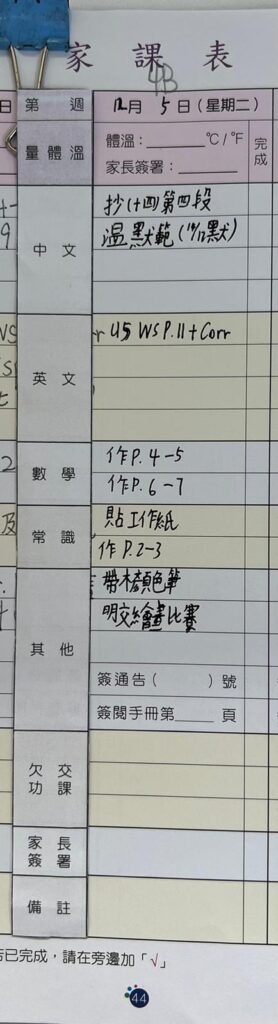 家課表
4B
第 週 12月5日(星期二)
量體溫 體溫:______°C/°F 完成
家長簽署:______
中文 抄(十四)第四段
溫默範(14/12默)
英文 U5 WS P.11+Corr
數學 作P.4-5
作P.6-7
常識 貼工作紙
作P.2-3
其他 帶木顏色筆
明交繪畫比賽
簽通告( )號
簽閱手冊第____頁
欠交功課
家長簽署
備註
已完成,請在旁邊加「√」
44